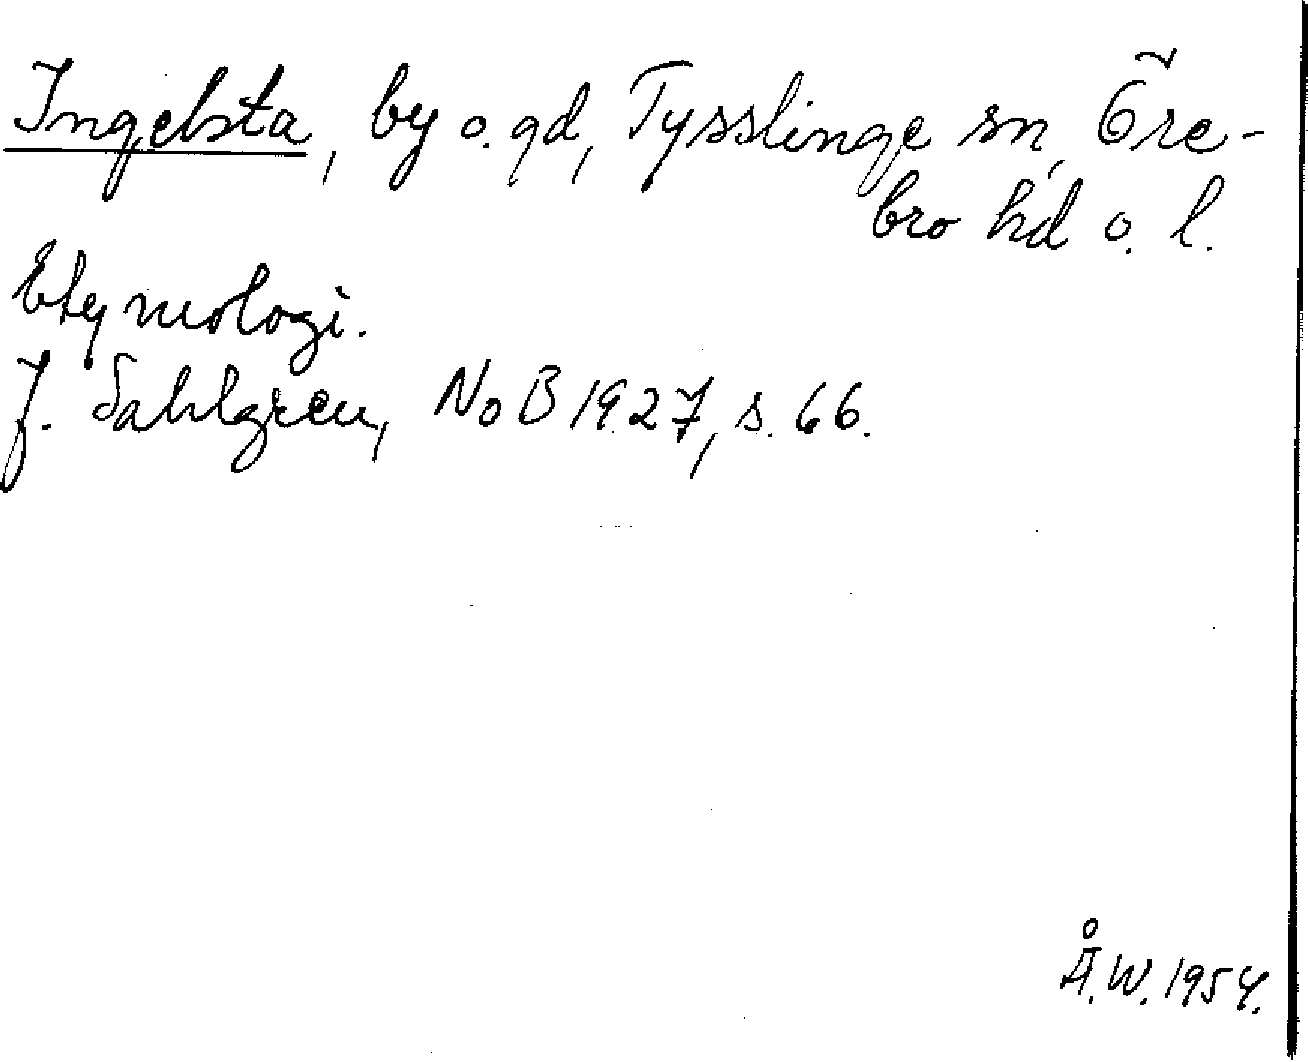 Ingelsta, by o. gd, Tysslinge sn, Öre-
bro hd o. l.
Etymologi.
J. Sahlgren, NoB 1927, s. 66.
Å.W. 1954.